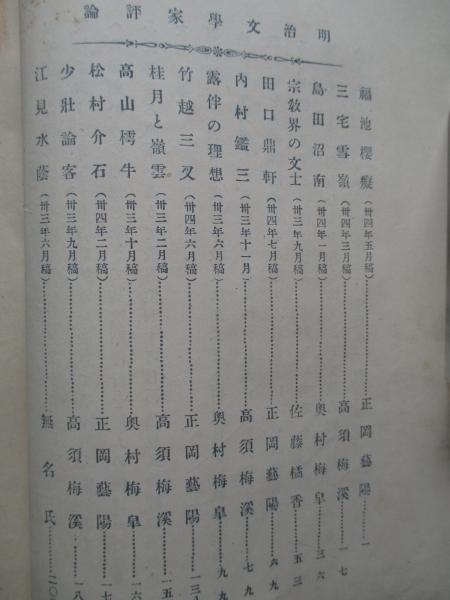 明治文學家評論
福池櫻癡(卅四年五月稿)………正岡藝陽…一
三宅雪嶺(卅四年三月稿)………高須梅溪…一七
島田沼南(卅四年一月稿)………奥村梅皐…三六
宗敎界の文士(卅三年九月稿)………佐藤橘香…五三
田口鼎軒(卅四年七月稿)………正岡藝陽…六九
內村鑑三(卅三年十一月稿)………高須梅溪…七九
露伴の理想(卅三年六月稿)………奥村梅皐…九九
竹越三叉(卅四年六月稿)………正岡藝陽…一三
桂月と嶺雲(卅三年二月稿)………高須梅溪…一五
高山樗牛(卅三年十月稿)………奥村梅皐…一六
松村介石(卅四年二月稿)………正岡藝陽…一七
少壯論客(卅三年九月稿)………高須梅溪…一八
江見水蔭(卅三年六月稿)………無名氏…二〇